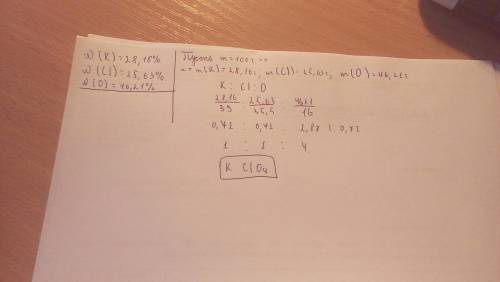 w(K)=28,16%
w(Cl)=25,63%
w(O)=46,21%
Пусть m=100г =>
=> m(K)=28,16г; m(Cl)=25,63г; m(O)=46,21г
K : Cl : O
28,16/39 : 25,63/35,5 : 46,21/16
0,72 : 0,72 : 2,88 | : 0,72
1 : 1 : 4
K ClO4